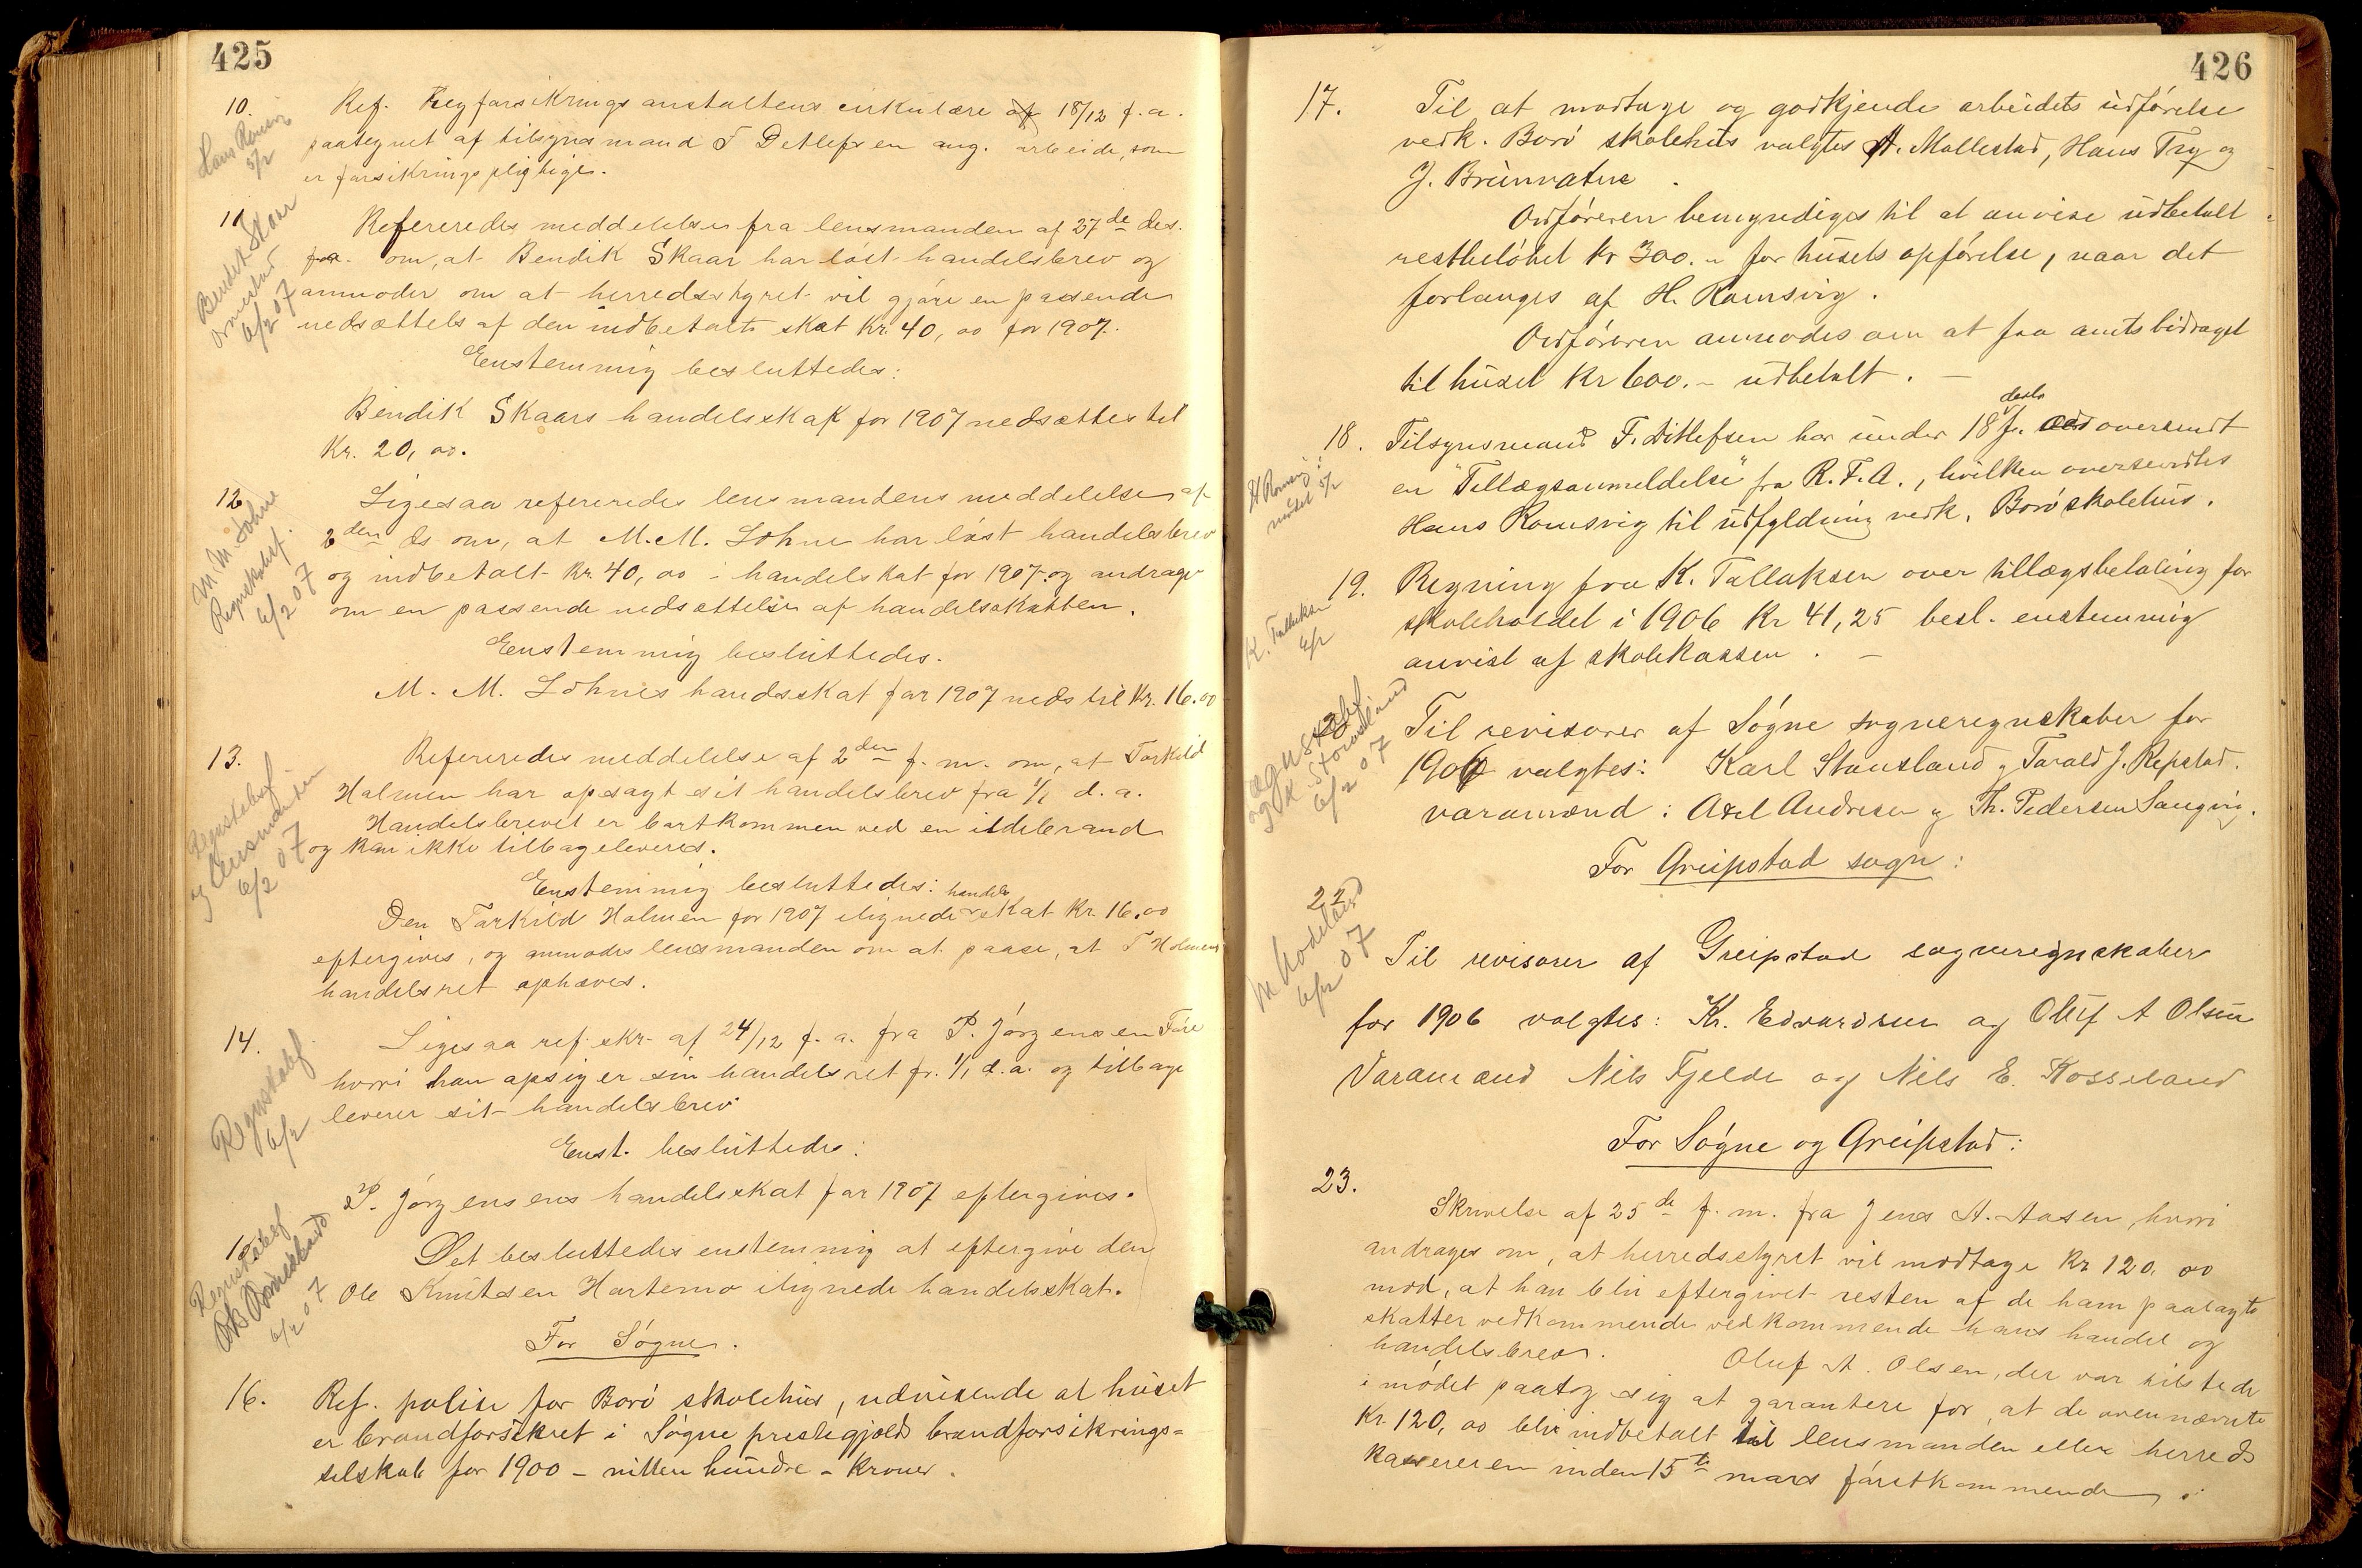 425
10. Ref. Regforsikringsanstaltens cirkulære af 18/12 f.a.
Hans Romsvig 5/2
paategnet af tilsynsmand F Detlefsen ang. arbeide, som
er forsikringspligtige.
11 Refereredes meddelelse fra lensmanden af 27de des.
Bendik Skaar 6/2 07
f.a. om, at Bendik Skaar har løst handelsbrev og
anmoder om at herredsstyret vil gjøre en passende
nedsættels af den indbetalte skat kr. 40,00 for 1907.
Eenstemmig besluttedes:
Bendik Skaars handelsskat for 1907 nedsættes til
Kr. 20,00.
12 Ligesaa refereredes lensmandens meddelelse af
M M Løhne Regnskabsf. 6/2 07
2den ds om, at M.M. Løhne har løst handelsbrev
og indbetalt kr. 40,00 i handelskat for 1907 og andrager
om en passende nedsættelse af handelsskatten.
Eenstemmig besluttedes.
M. M. Løhnes handsskat for 1907 neds til Kr. 16.00
13. Refereredes meddelelse af 2den f.m. om, at Torkild
Regnskabsf og lensmanden 6/2 07
Holmen har opsagt sit handelsbrev fra 1/1 d.a.
Handelsbrevet er bortkommen ved en ildebrand
og kan ikke tilbageleveres.
Eenstemmig besluttedes:
Den Torkild Holmen for 1907 ilignede handelsskat Kr. 16.00
eftergives, og anmodes lensmanden om at paase, at T Holmens
handelsret ophæves.
14. Ligesaa ref. skr. af 24/12 f.a. fra P. Jørgensen
Regnskabsf 6/2
hvori han opsiger sin handelsret fr. 1/1 d.a. og tilbage
leverer sit handelsbrev
Eenst. besluttedes:
P. Jørgensens handelsskat for 1907 eftergives.
15 Det besluttedes enstemmig at eftergive den
Regnskabsf 6/2 07
Ole Knutsen Hortemo ilignede handelsskat.
For Søgne.
16. Ref. polise for Borø skolehus, udvisende at huset
er brandforsikret i Søgne prestegjelds brandforsikrings=
selskab for 1900 - nitten hundre - kroner.
426
17. Til at modtage og godkjende arbeidets udførelse
vedk. Borø skolehus valgtes A. Mollestad, Hans Try og
J. Brunvatne.
Ordføreren bemyndiges til at anvise udbetalt
restbeløbet kr 300.- for husets opførelse, naar det
forlanges af H. Romsvig.
Ordføreren anmodes om at faa amtsbidraget
til huset kr 600.- udbetalt. -
18. Tilsynsmand F. Ditlefsen har under 18 f. desbr oversendt
H Romsvig i mødet 5/2
en "Tillægsanmeldelse" fra R.F.A., hvilken oversendtes
Hans Romsvig til udfyldning vedk. Borø skolehus.
19. Regning fra K. Tallaksen over tillægsbetaling for
K. Tallaksen 6/2
skoleholdet i 1906 kr 41,25 besl. enstemmig
anvist af skolekassen. -
Til revisorer af Søgne sogneregnskaber for
Regnskabsf og K Stousland 6/2 07
1906 valgtes: Karl Stousland og Tarald J. Repstad.
varamænd: Axel Andresen og Th. Pedersen Langvig.
For Greipstad sogn:
22
6/2 07
Til revisorer af Greipstad sogneregnskaber
for 1906 valgtes: Kr. Edvardsen og Oluf A Olsen
Varamænd Nils Fjelde og Nils E. Kosseland
For Søgne og Greipstad:
23.
Skrivelse af 25de f.m. fra Jens A. Aasen, hvori
andrages om, at herredsstyret vil modtage Kr 120,00
mod, at han blir eftergivet resten af de ham paalagte
skatter vedkommende vedkommende hans handel og
handelsbrev. Oluf A. Olsen, der var tilstede
i mødet paatog sig at garantere for, at de ovennævnte
Kr. 120,00 blir indbetalt til lensmanden eller herreds
kassereren inden 15de mars førstkommende.